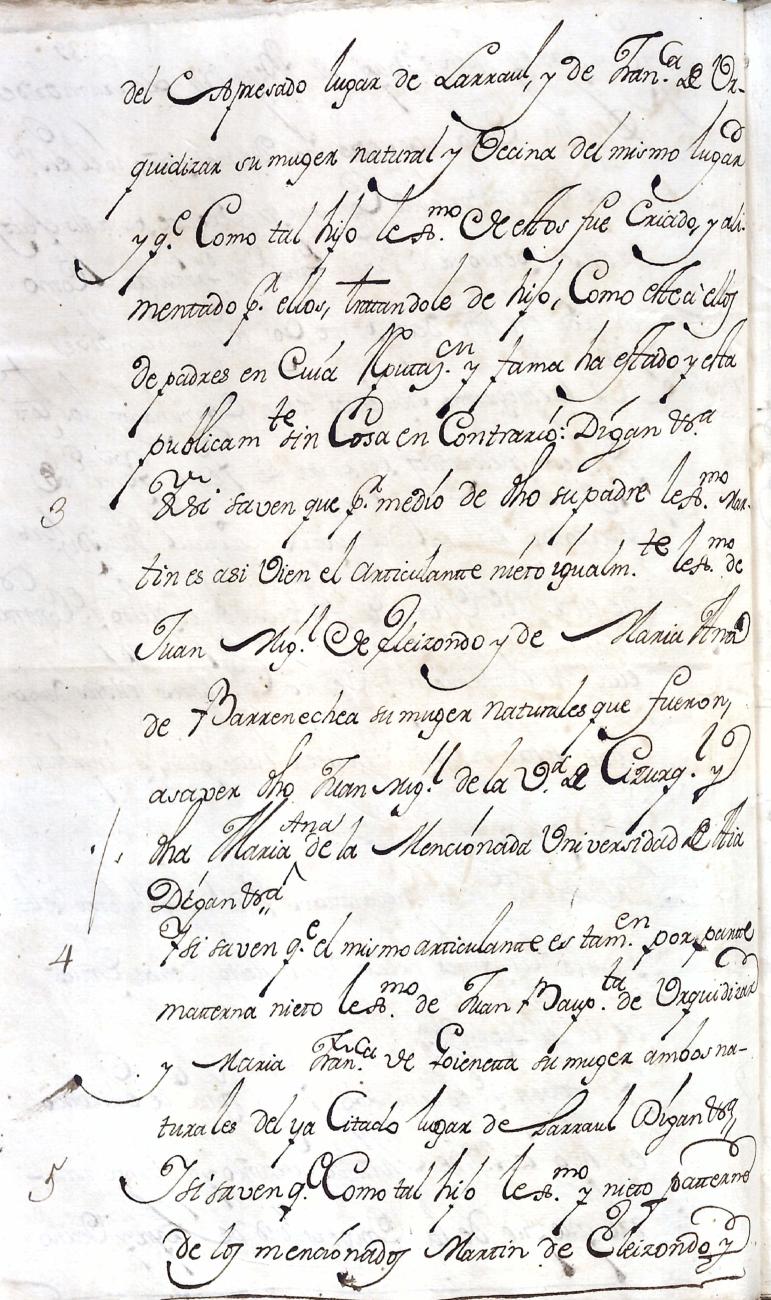 del Expresado lugar de Larraul, y de Fran.ca de Ur-
quidizar su muger natural y Vecina del mismo lugar
y q.e Como tal hijo lexmo. de estos fue Criado, y ali-
mentado p.r ellos, tratandole de hijo, Como este a ellos
de padres en Cuia Reputaz.on y fama ha estado y esta
publicam.te sin Cosa en Contrario: Digan &.a
3 Y si saven que p.r medio de dho su padre lex.mo Mar-
tin es asi vien el articulante nieto igualm.te lex.mo de
Juan Mig.l de Eleizondo y de Maria Ana
de Barrenechea su muger naturales que fueron,
asaver dho Juan Mig.l de la V.a de Cizurq.l y
dha Maria Ana de la Mencionada Universidad de Aia
Digan &.a
4 Y si saven q.e el mismo articulante es tam.en por parte
materna nieto lex.mo de Juan Baup.ta de Urquidizar
y Maria Fran.ca de Goieneta su muger ambos na-
turales del ya Citado lugar de Larraul Digan &.a
5 Y si saven q.e Como tal hijo lex.mo y nieto patterno
de los mencionados Martin de Eleizondo y